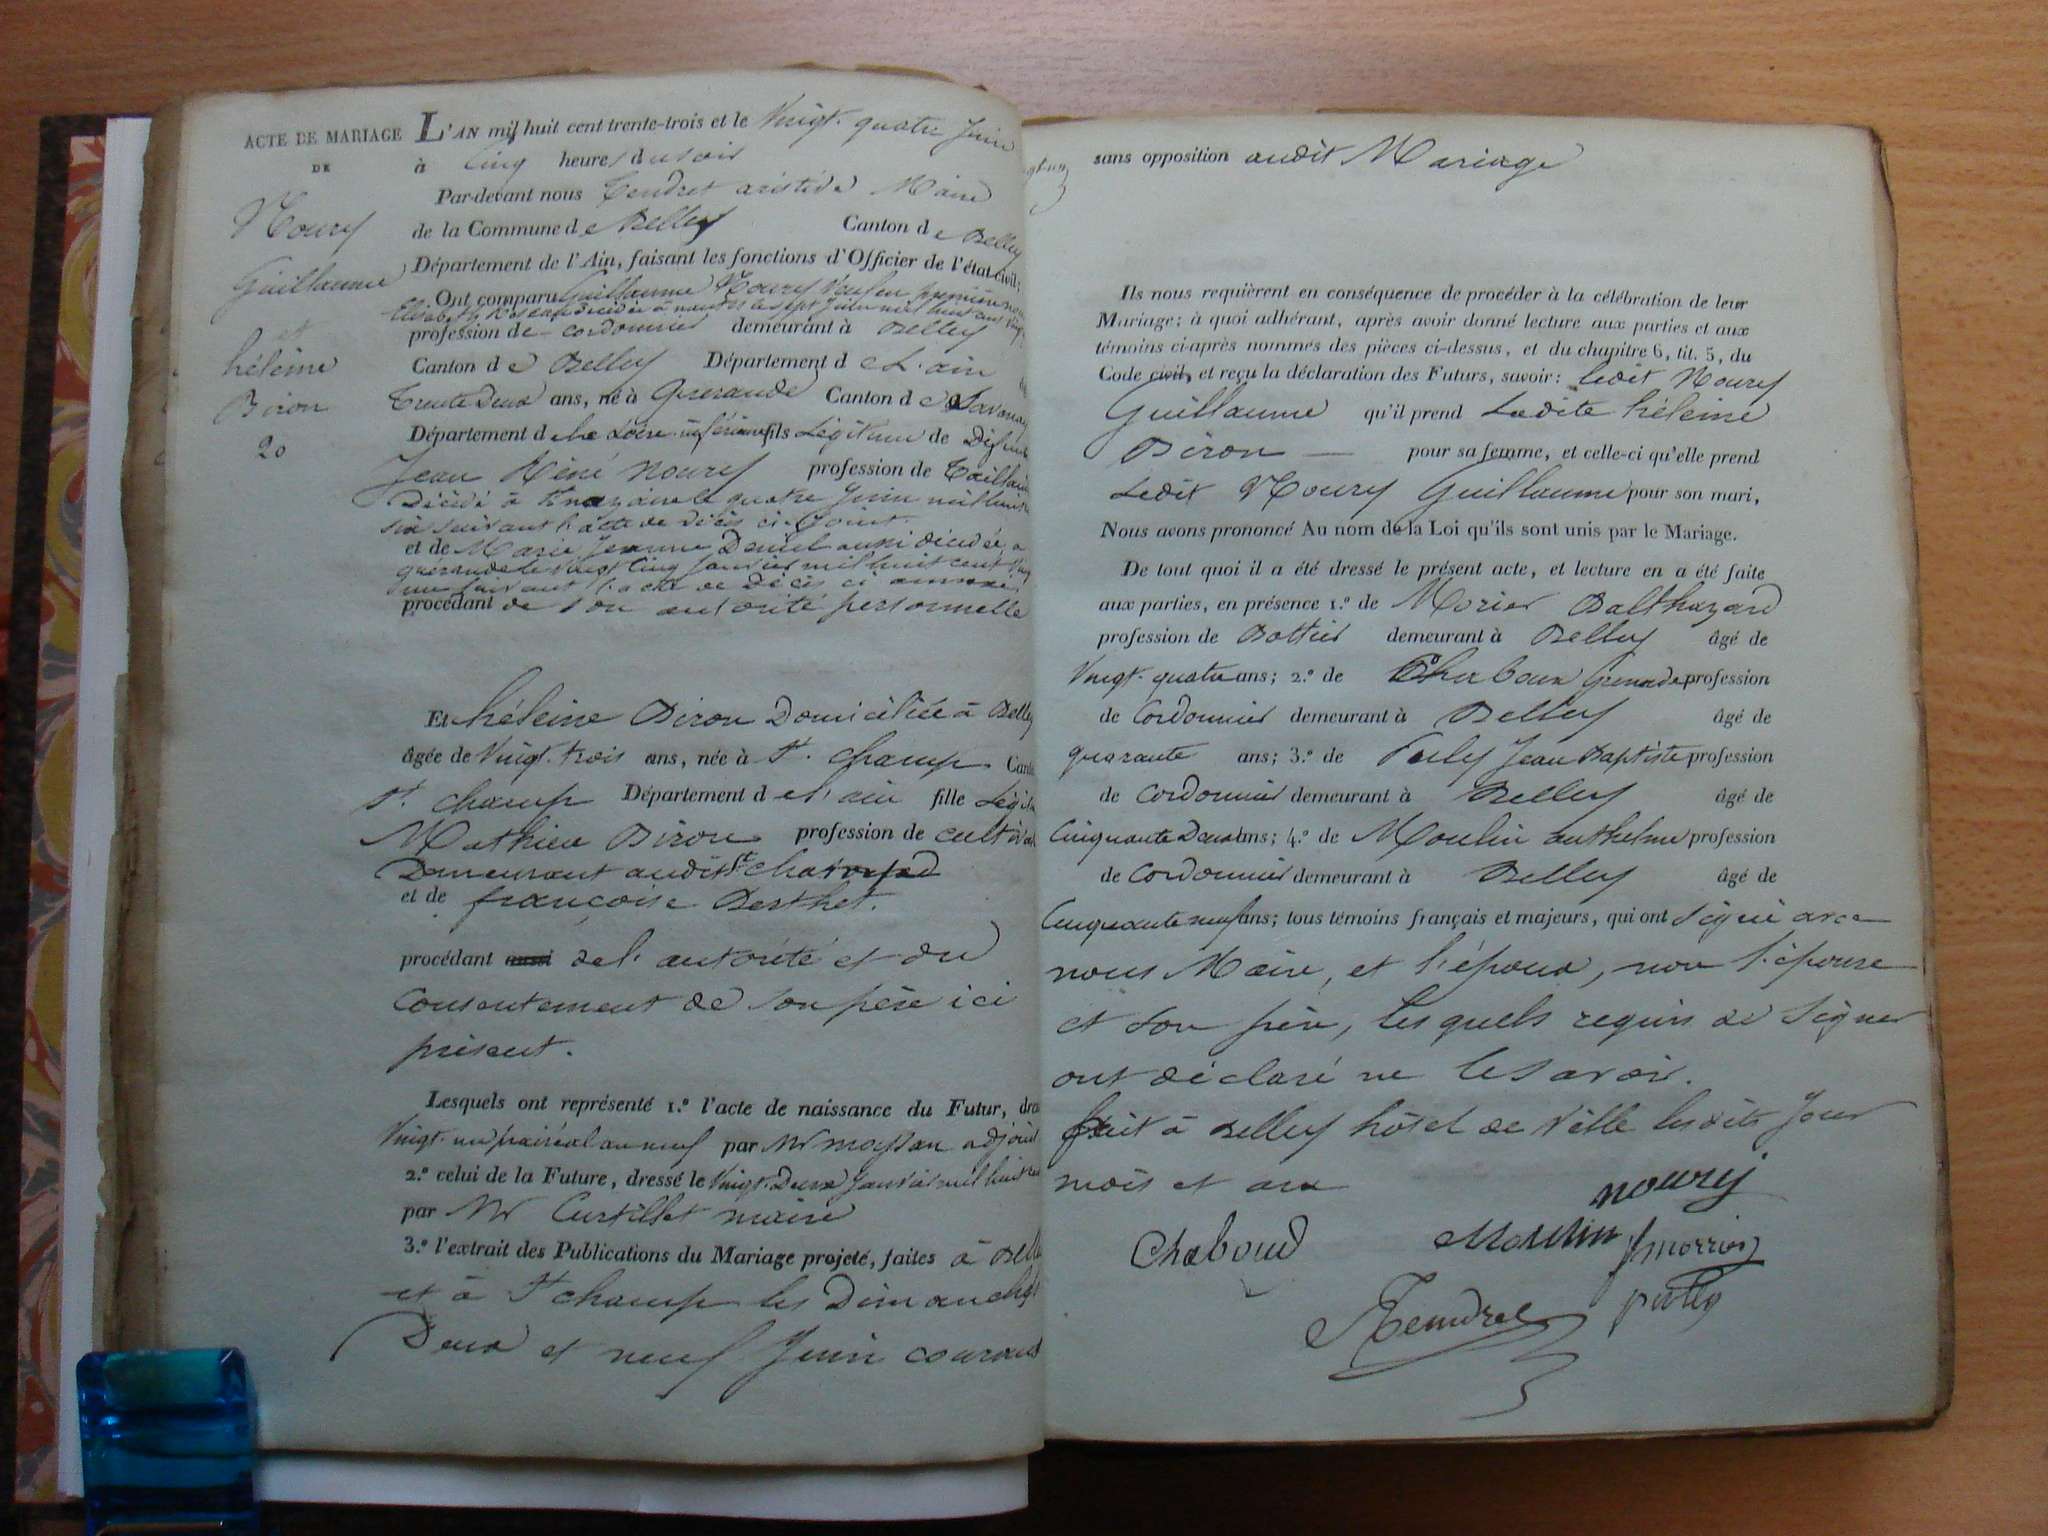 ACTE DE MARIAGE
DE
Noury
Guillaume
et
héleine
Biron
20
L'AN mil huit cent trente-trois et le Vingt-quatre Juin
à Cinq heures du soir
Par-devant nous Tendret aristide Maire
de la Commune de Belley Canton de Belley
Département de l'Ain, faisant les fonctions d'Officier de l'état civil;
Ont comparu Guillaume Noury Veuf en premières noces
Elisabeth décédée à le sept Juin mil huit cent vingt
profession de cordonnier demeurant à Belley
Canton de Belley Département de L'ain
Trente Deux ans, né à Guerande Canton de Savenay
Département de la Loire inférieure fils Légitime de Défunt
Jean Réné Noury profession de Taillandier
Décédé à le quatre Juin mil huit cent
six suivant l'acte de Décès ci-Joint.
et de Marie Jeanne Deniel aussi décédée à
guerande le Vingt Cinq Janvier mil huit cent
suivant l'acte de Décès ci annexé
procédant de son autorité personnelle
Et héleine Biron Domiciliée à Belley
âgée de Vingt-trois ans, née à St. Champ Canton
St. Champ Département de l'ain fille Légitime
Mathieu Biron profession de cultivateur
Demeurant audit St Champ
et de françoise Berthet.
procédant aussi de l'autorité et du
Consentement de son père ici
présent.
Lesquels ont représenté 1.° l'acte de naissance du Futur, dressé
Vingt-un prairéal an neuf par Mr maysan adjoint
2.° celui de la Future, dressé le Vingt-Deux Janvier mil huit cent
par Mr Curtillet maire
3.° l'extrait des Publications du Mariage projeté, faites à Belley
et à St champ les Dimanches
Deux et neuf Juin courant
sans opposition audit Mariage
Ils nous requièrent en conséquence de procéder à la célébration de leur
Mariage; à quoi adhérant, après avoir donné lecture aux parties et aux
témoins ci-après nommés des pièces ci-dessus, et du chapitre 6, tit. 5, du
Code civil, et reçu la déclaration des Futurs, savoir: ledit Noury
Guillaume qu'il prend Ladite héleine
Biron — pour sa femme, et celle-ci qu'elle prend
Ledit Noury Guillaume pour son mari,
Nous avons prononcé Au nom de la Loi qu'ils sont unis par le Mariage.
De tout quoi il a été dressé le présent acte, et lecture en a été faite
aux parties, en présence 1.° de Morier Balthazard
profession de Bottier demeurant à Belley âgé de
Vingt-quatre ans; 2.° de Chaboux profession
de Cordonnier demeurant à Belley âgé de
quarante ans; 3.° de Jean Baptiste profession
de Cordonnier demeurant à Belley âgé de
Cinquante Deux ans; 4.° de Moulin anthelme profession
de Cordonnier demeurant à Belley âgé de
Cinquante neuf ans; tous témoins français et majeurs, qui ont signé avec
nous Maire, et l'époux, non l'épouse
et son père, lesquels requis de signer
ont déclaré ne le savoir.
fait à Belley hôtel de Ville lesdits Jour
mois et an
noury
Chaboud Moulin morrier
Tendret